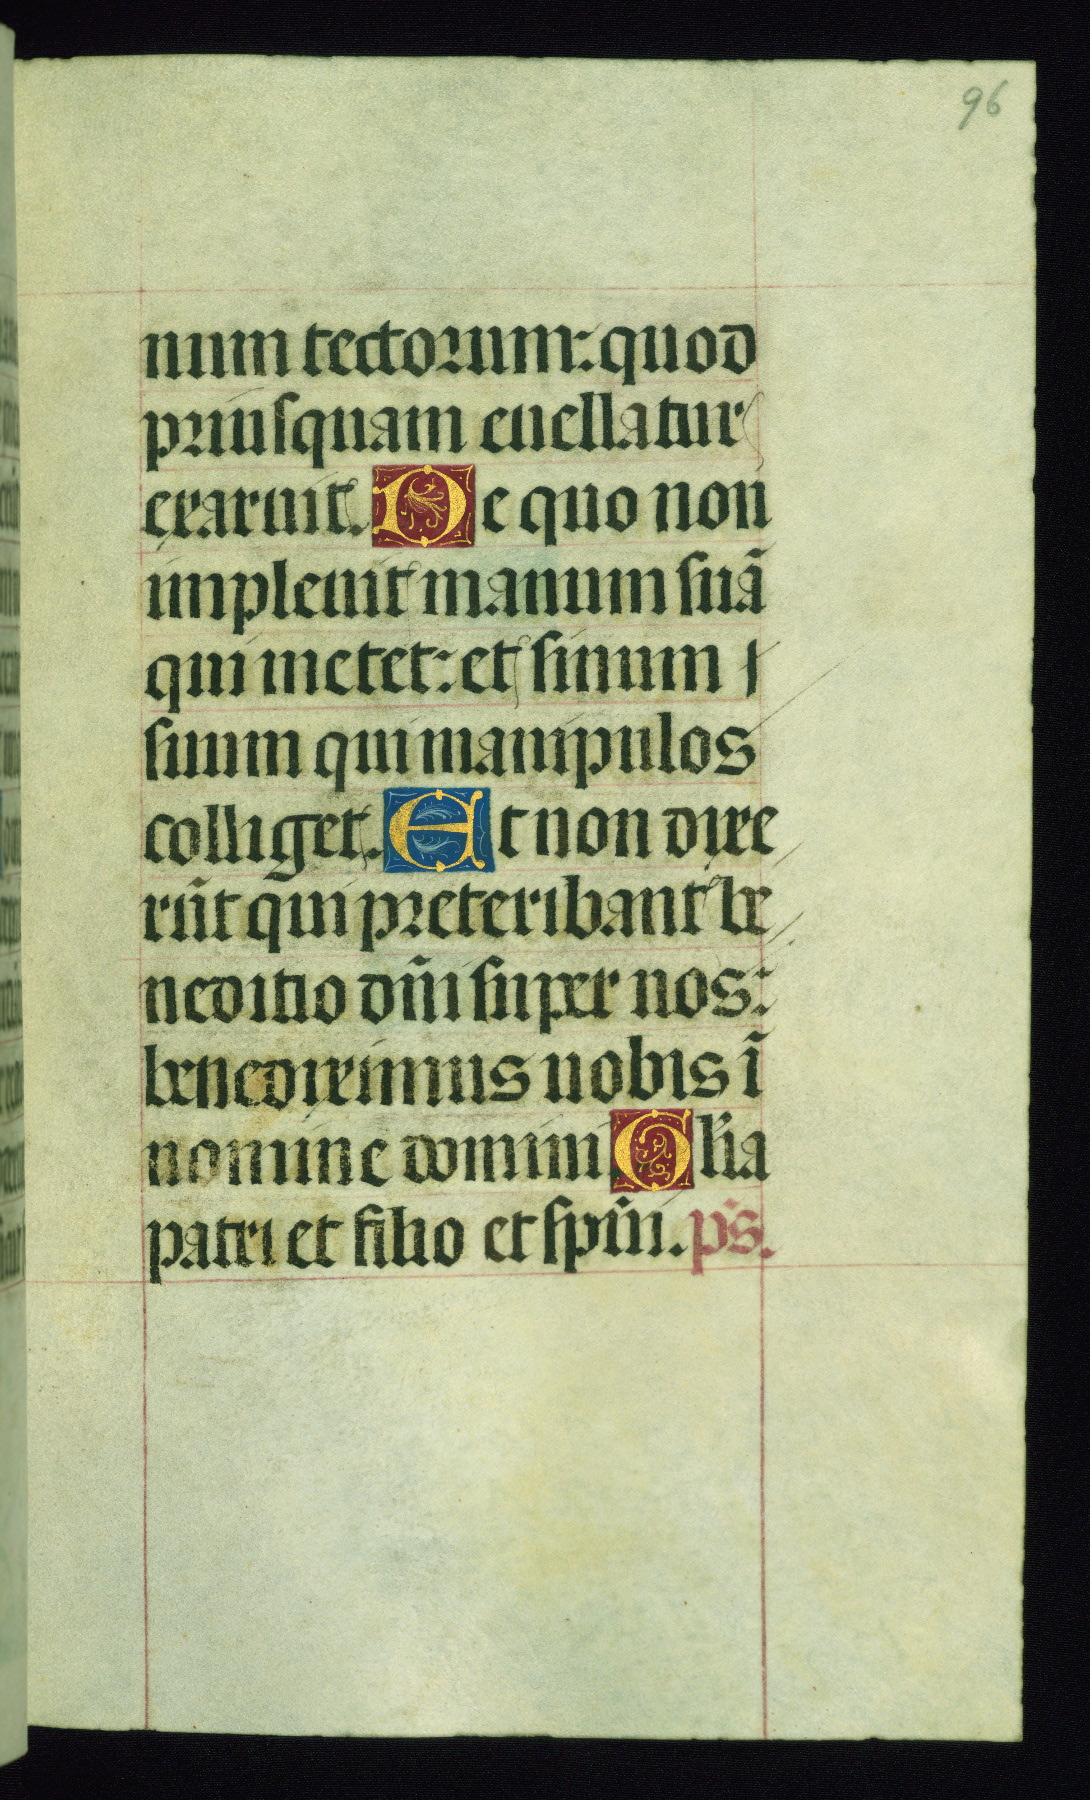 96
num tectorum: quod
priusquam euellatur
exaruit. De quo non
impleuit manum suā
qui metet: et sinum
suum qui manipulos
colliget. Et non dixe
rūt qui preteribant be
neditio dn̄i super nos:
benediximus uobis ī
nomine domini Glīa
patri et filio et spūi. ps̄.